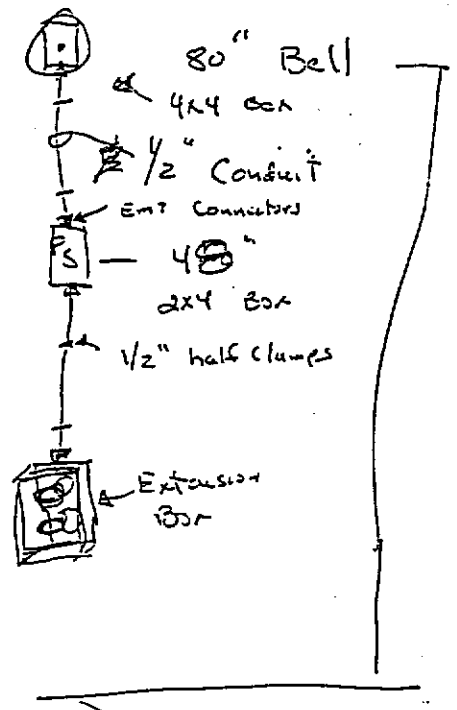 80" Bell
4x4 Box
1/2" Conduit
EMT Connectors
PS
48"
2x4 Box
1/2" half Clamps
Extension
Box